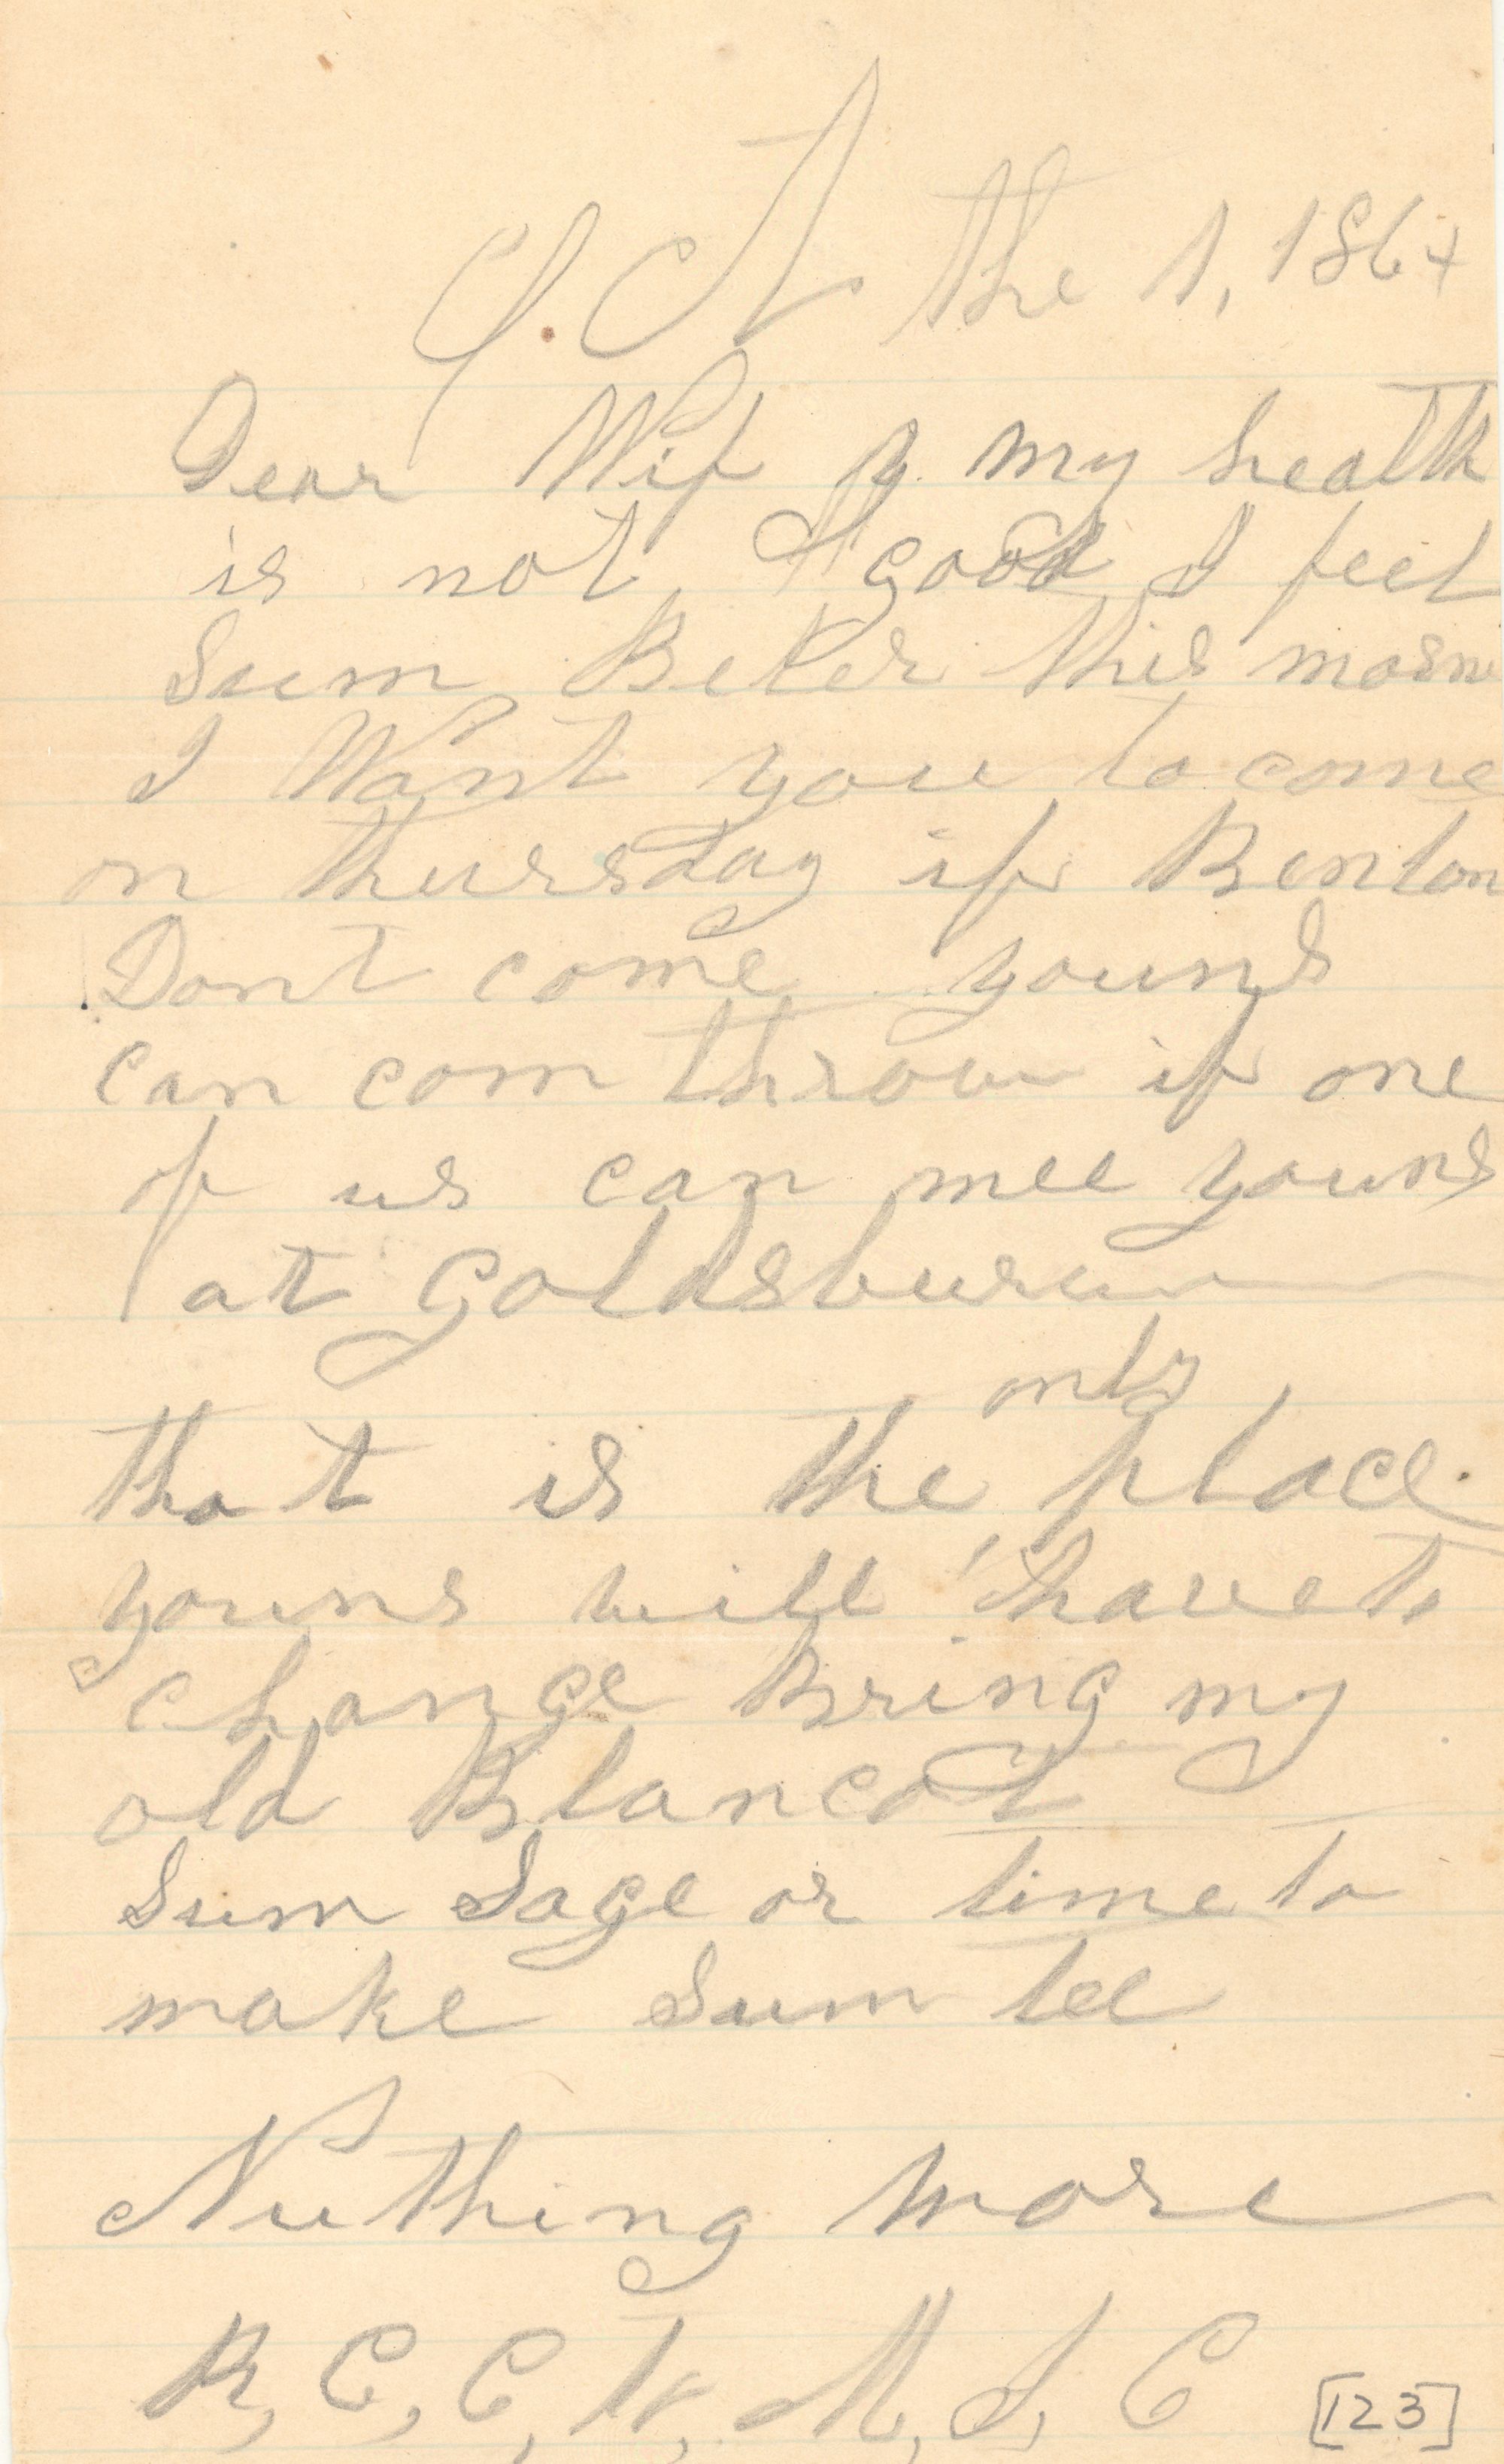 O. C. T the 1, 1864
Dear Wif my health
is not good I feel
Sum Beter this morn
I Want you to come
on thursday if Benton
Dont come youns
can com throu if one
of us can mee youns
at Goldsburu
only
that is the place
youns will have to
change Bring my
old Blancot
Sum Sage or time to
make Sum tee
Nuthing more
R, C, C, W, M, J, C
[123]